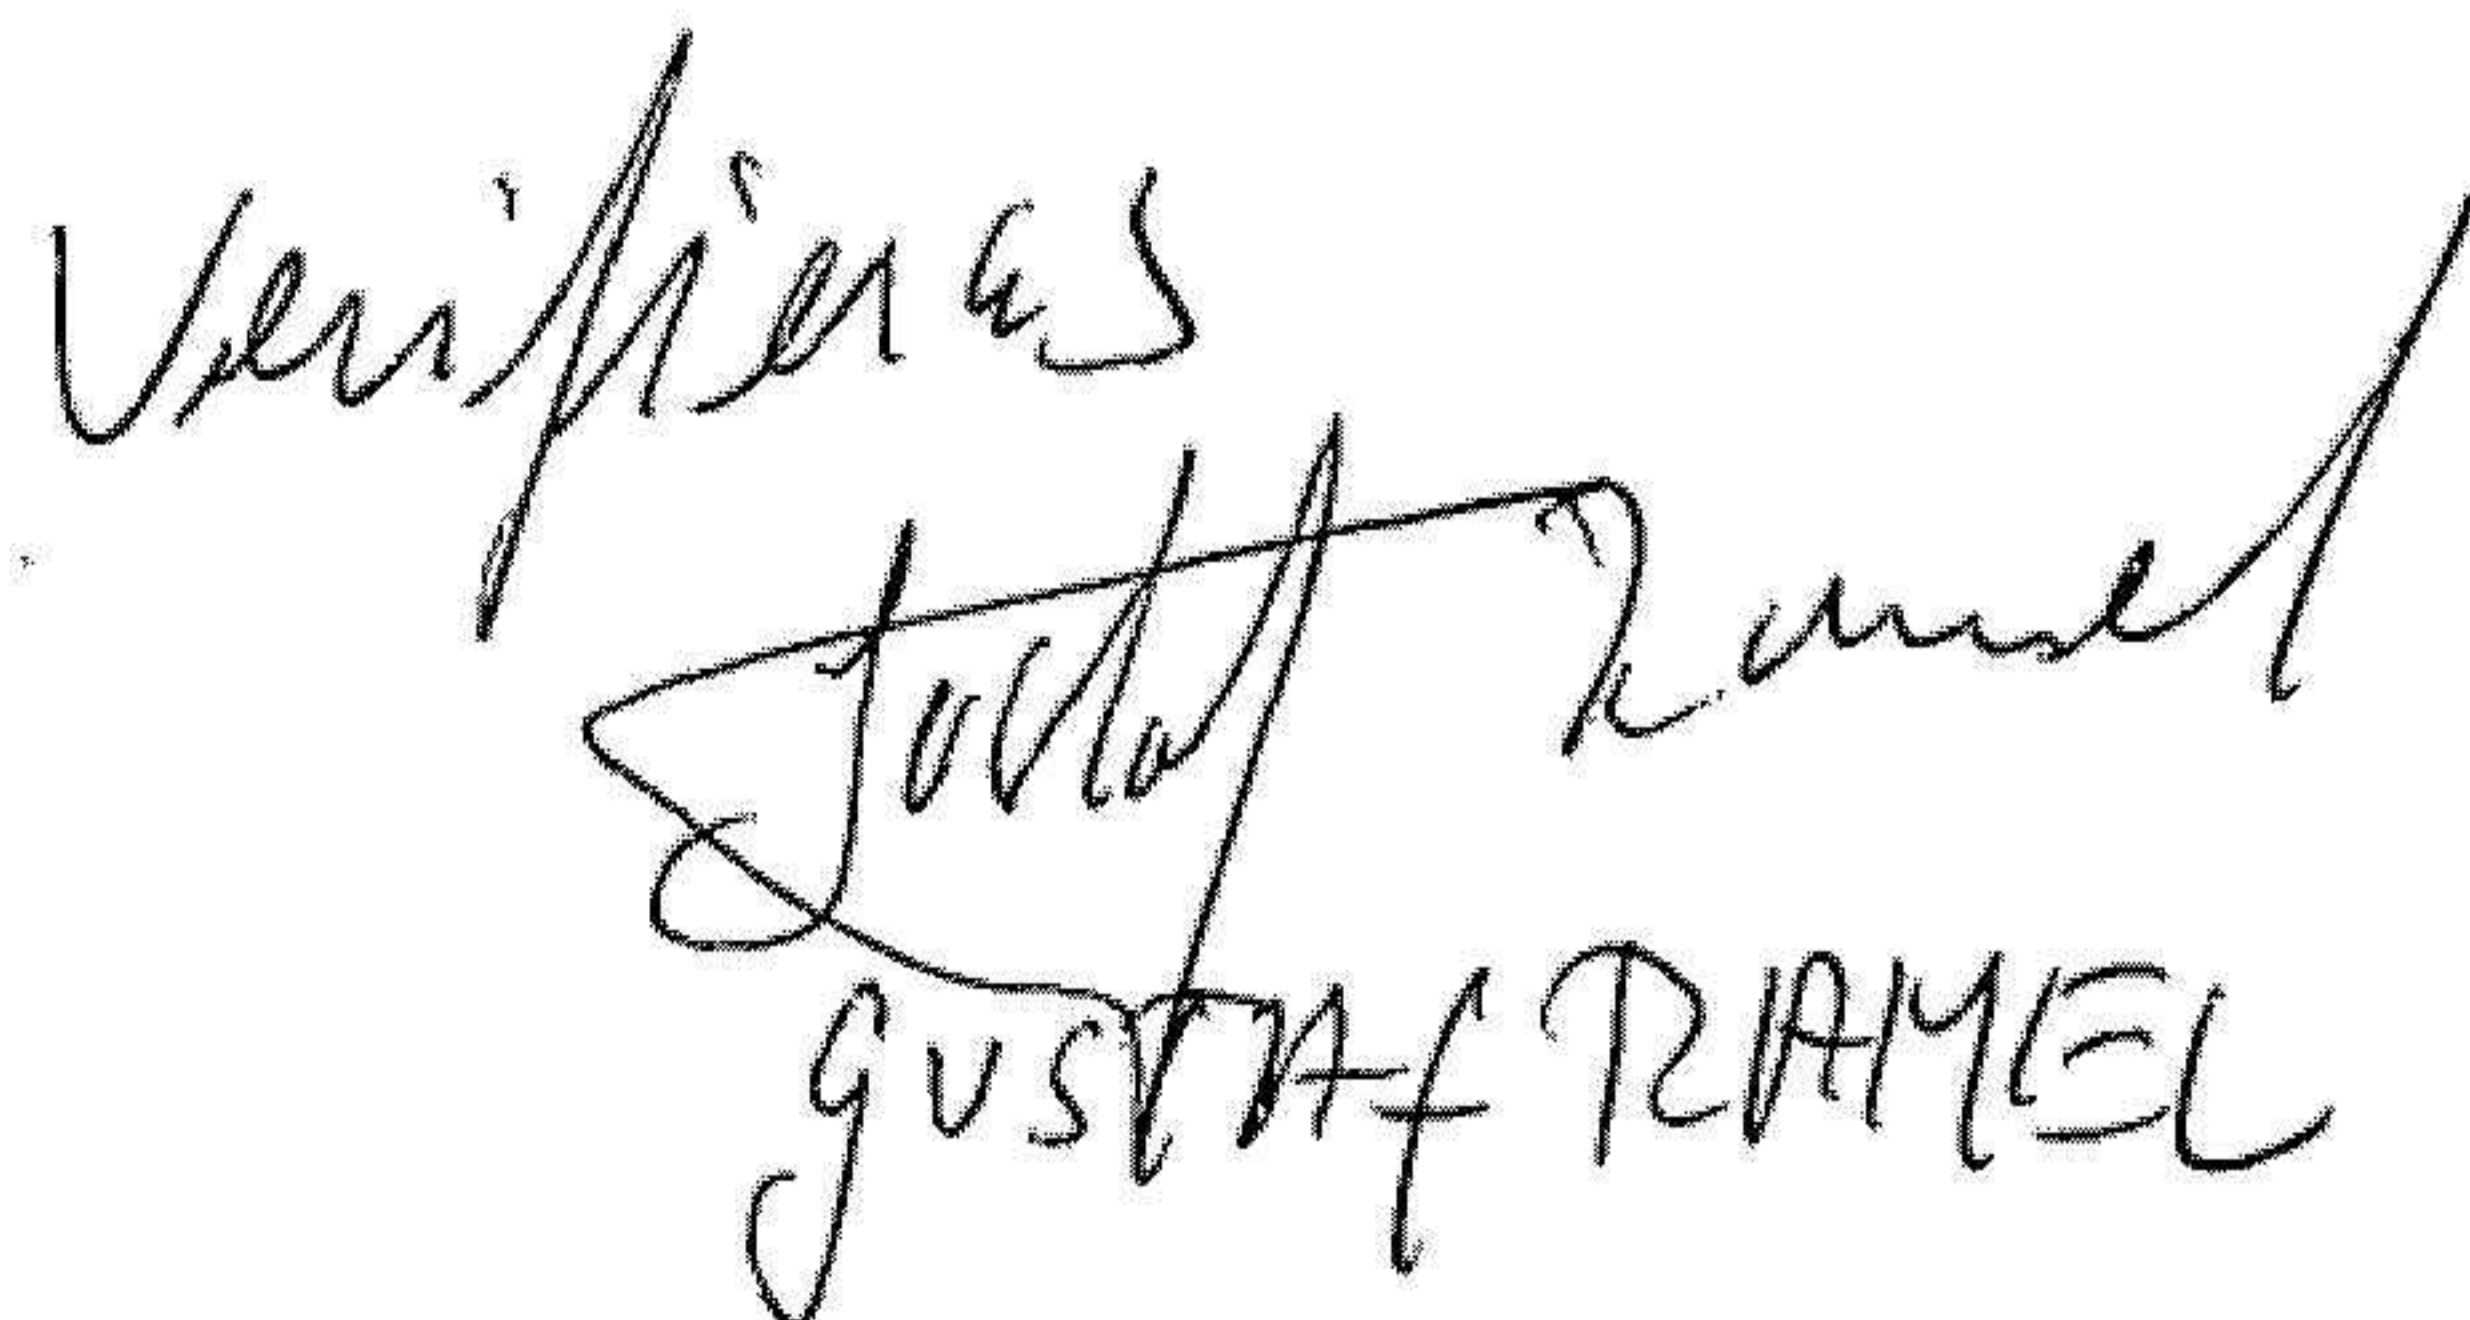 Verifieras
Gustaf Ramel
GUSTAf RAMEL